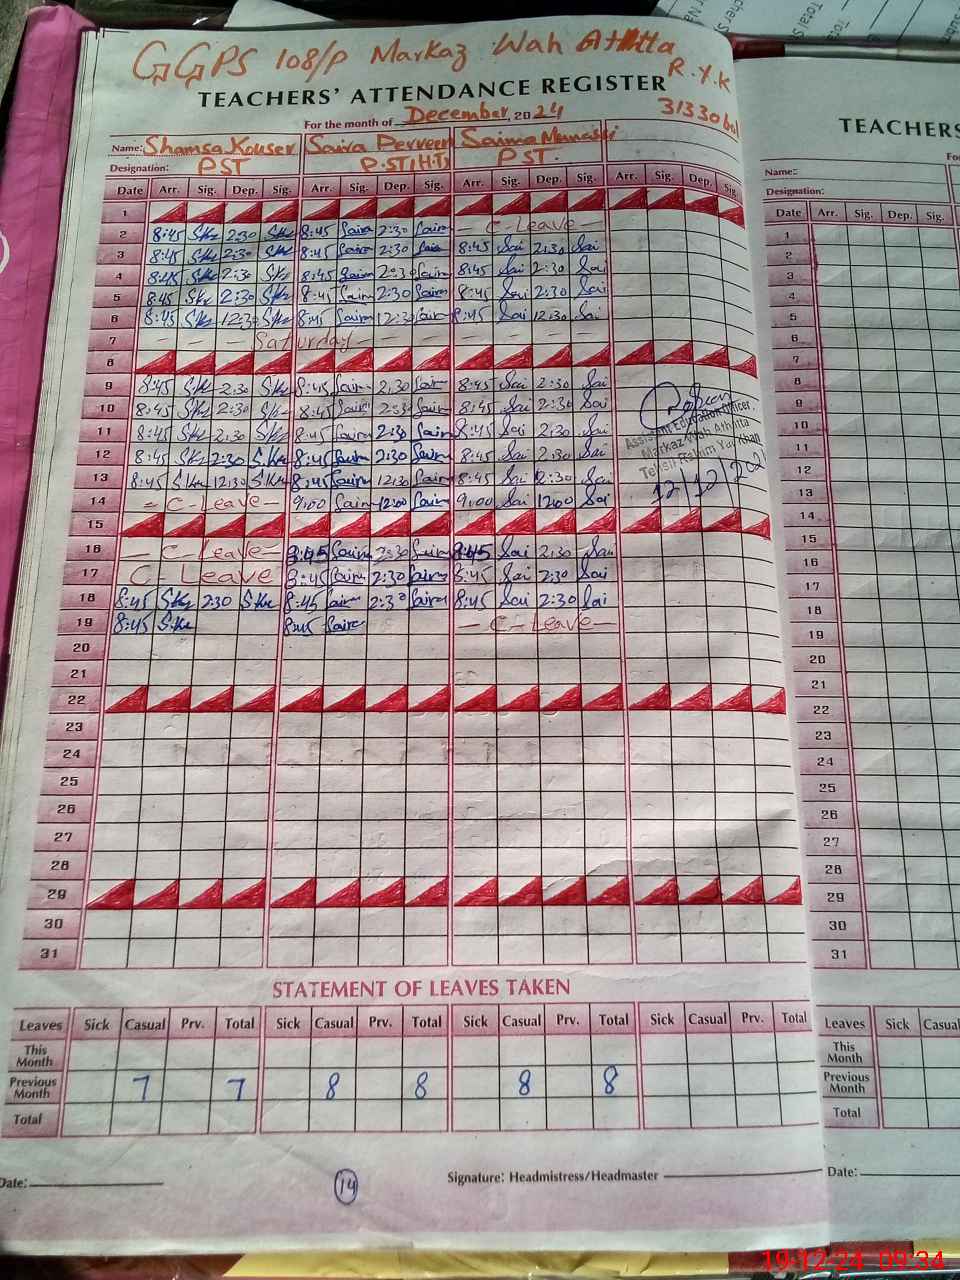 GGPS 108/P Markaz Wah Athitta
R.Y.K
TEACHERS' ATTENDANCE REGISTER
For the month of December 2024
31330
Name: Shamsa Kouser Saira Perveen Saima
Designation: PST PST(H.T) PST
Date Arr. Sig. Dep. Sig. Arr. Sig. Dep. Sig. Arr. Sig. Dep. Sig. Arr. Sig. Dep. Sig.
1
2 8:45 Skr 2:30 Skr 8:45 Saira 2:30 Saira - C-Leave -
3 8:45 Skr 2:30 Skr 8:45 Saira 2:30 Saira 8:45 Sai 2:30 Sai
4 8:45 Skr 2:30 Skr 8:45 Saira 2:30 Saira 8:45 Sai 2:30 Sai
5 8:45 Skr 2:30 Skr 8:45 Saira 2:30 Saira 8:45 Sai 2:30 Sai
6 8:45 Skr 12:30 Skr 8:45 Saira 12:30 Saira 8:45 Sai 12:30 Sai
7 - - - Saturday - - - - - -
8
9 8:45 Skr 2:30 Skr 8:45 Saira 2:30 Saira 8:45 Sai 2:30 Sai
10 8:45 Skr 2:30 Skr 8:45 Saira 2:30 Saira 8:45 Sai 2:30 Sai
11 8:45 Skr 2:30 Skr 8:45 Saira 2:30 Saira 8:45 Sai 2:30 Sai
12 8:45 Skr 2:30 S.Kr 8:45 Saira 2:30 Saira 8:45 Sai 2:30 Sai
13 8:45 S.Kr 12:30 S.Kr 8:45 Saira 12:30 Saira 8:45 Sai 12:30 Sai
14 - C-Leave - 9:00 Saira 12:00 Saira 9:00 Sai 12:00 Sai
Assistant Education Officer,
Markaz Wah Athitta
Tehsil Rahim Yar Khan
12/12/202
15
16 - C-Leave - 8:45 Saira 2:30 Saira 8:45 Sai 2:30 Sai
17 C-Leave 8:45 Saira 2:30 Saira 8:45 Sai 2:30 Sai
18 8:45 Skr 2:30 Skr 8:45 Saira 2:30 Saira 8:45 Sai 2:30 Sai
19 8:45 S.Kr 8:45 Saira - C-Leave -
20
21
22
23
24
25
26
27
28
29
30
31
STATEMENT OF LEAVES TAKEN
Leaves Sick Casual Prv. Total Sick Casual Prv. Total Sick Casual Prv. Total Sick Casual Prv. Total
This Month
Previous Month 7 7 8 8 8 8
Total
Date:
14
Signature: Headmistress/Headmaster
TEACHERS
Name:
Designation:
Date Arr. Sig. Dep. Sig.
1
2
3
4
5
6
7
8
9
10
11
12
13
14
15
16
17
18
19
20
21
22
23
24
25
26
27
28
29
30
31
Leaves Sick Casual
This Month
Previous Month
Total
Date:
19-12-24 09:34